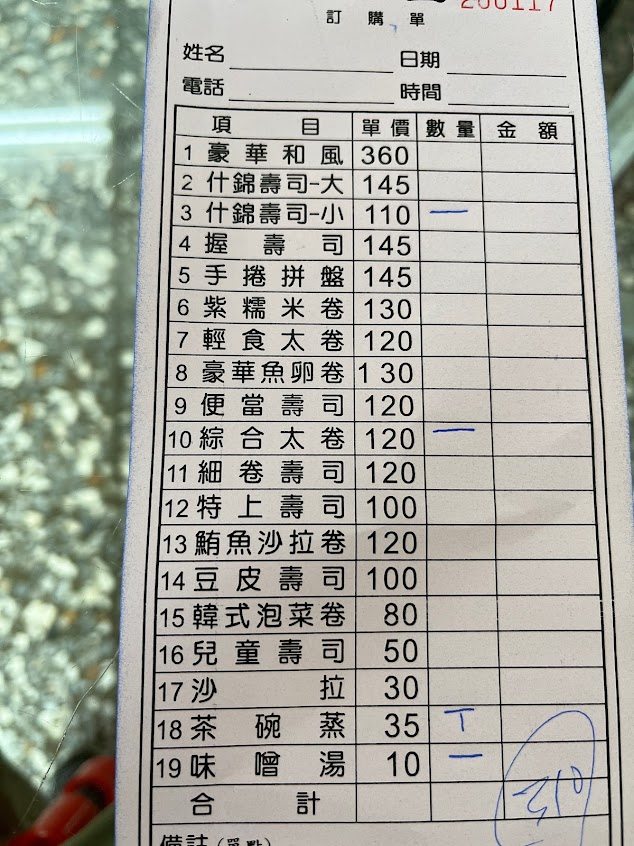 260117
訂購單
姓名 日期
電話 時間
項目 單價 數量 金額
1 豪華和風 360
2 什錦壽司-大 145
3 什錦壽司-小 110 一
4 握壽司 145
5 手捲拼盤 145
6 紫糯米卷 130
7 輕食太卷 120
8 豪華魚卵卷 130
9 便當壽司 120
10 綜合太卷 120 一
11 細卷壽司 120
12 特上壽司 100
13 鮪魚沙拉卷 120
14 豆皮壽司 100
15 韓式泡菜卷 80
16 兒童壽司 50
17 沙拉 30
18 茶碗蒸 35 T
19 味噌湯 10 一
合計 310
備註(單點)